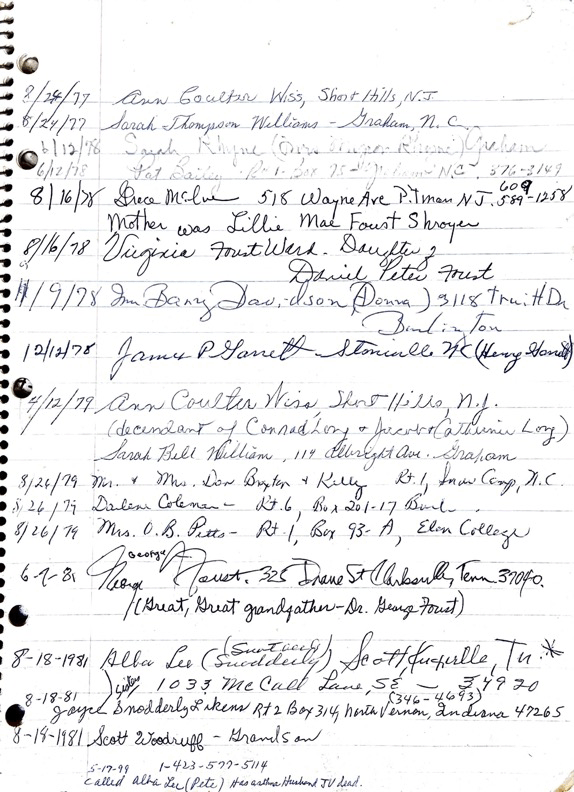 8/24/77 Ann Coulter Wiss, Short Hills, N.J.
8/24/77 Sarah Thompson Williams - Graham, N.C.
6/12/78 Sarah Rhyne Graham
6/12/78 Pat Bailey Rt 1- Box 75 - Graham N.C. 376-3149
8/16/78 Grace 518 Wayne Ave Pitman N.J. 609 589-1258
Mother was Lillie Mae Foust Shroyer
8/16/78 Virginia Foust Ward. Daughter of
Daniel Peter Foust
11/9/78 Barry Davidson (Donna) 3118 Truitt Dr
Burlington
12/12/78 James P Garrett Stoneville NC (Henry Garrett)
4/12/79 Ann Coulter Wiss, Short Hills, N.J.
(decendant of Conrad Long & Jacob & Catherine Long)
Sarah Bell William, 114 Albright Ave. Graham
8/26/79 Mr. & Mrs. Don Braxton & Kelly Rt. 1, Snow Camp, N.C.
8/26/79 Darlene Coleman - Rt. 6, Box 201-17 Burl.
8/26/79 Mrs. O.B. Pitts - Rt. 1, Box 93-A, Elon College
George
6-7-81 George Foust. 325 St Clarksville, Tenn 37040.
(Great, Great grandfather - Dr. George Foust)
8-18-1981 Alba Lee (Snodderly) Scott Knoxville, Tn. *
sister 1033 McCall Lane, SE - 37920
8-18-81 (346-4693)
Joyce Snodderly Likens Rt 2 Box 314, North Vernon, Indiana 47265
8-19-1981 Scott Woodruff - Grandson
5-17-99 1-423-577-5114
called Alba Lee (Pete) Has asthma Husband JV dead.